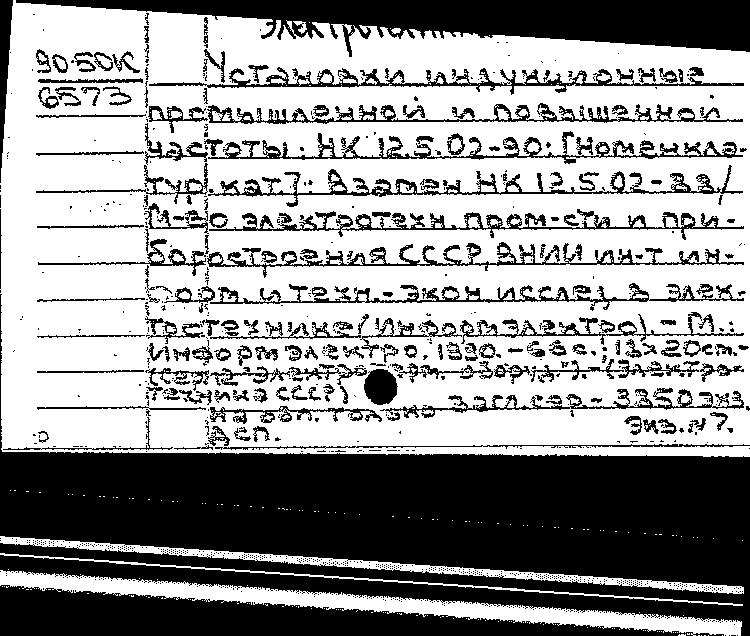 Электротехника
90-50К
6573
Установки индукционные
промышленной и повышенной
частоты: НК 12.5.02-90: [Номенкла-
тур. кат.]: Взамен НК 12.5.02-88/
М-во электротехн. пром-сти и при-
боростроения СССР, ВНИИ ин-т ин-
форм. и техн.-экон. исслед. в элек-
тротехнике (Информэлектро). - М.:
Информэлектро, 1990. - 66 с.; 13х20см.-
(Серия "Электротерм. оборуд."). - (Электро-
техника СССР)
На обл. только загл. сер - 3350 экз.
ДСП. Экз. № 7.